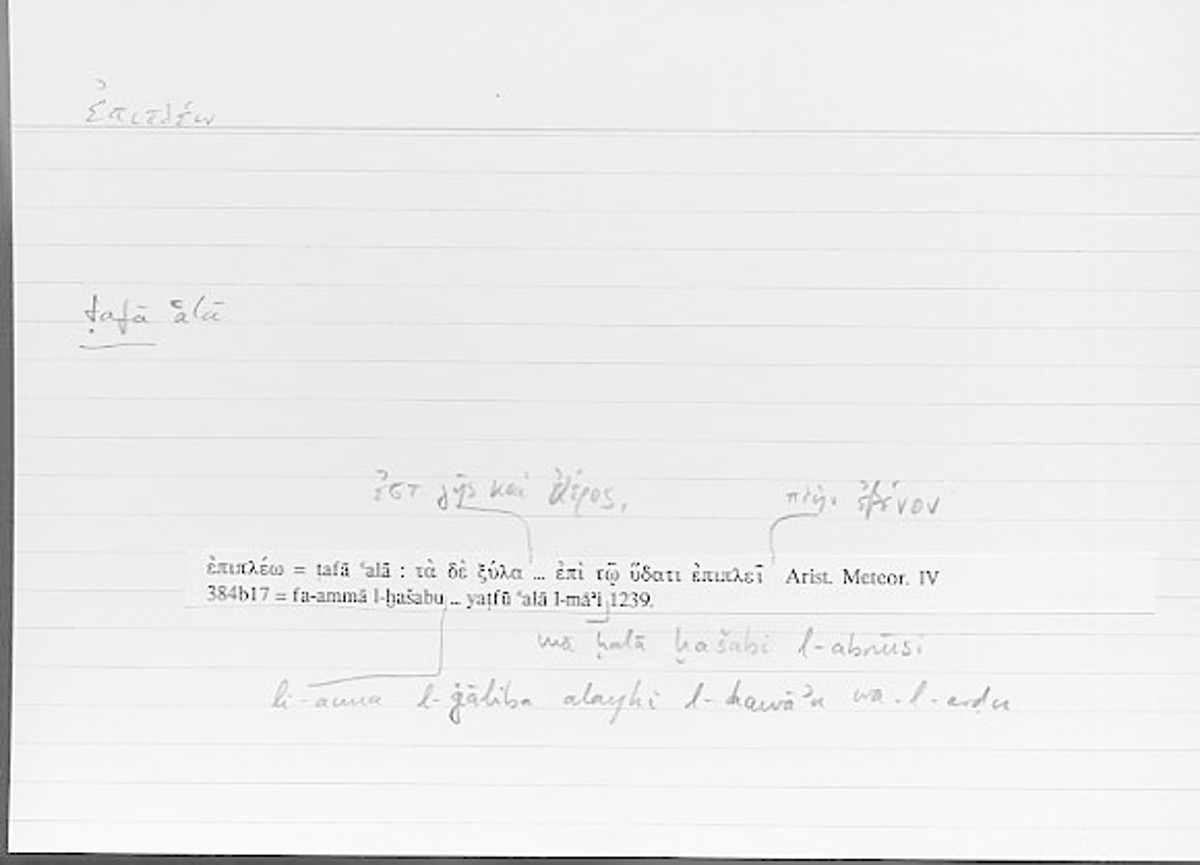 ἐπιπλέω
ṭafā ʿalā
ἐστ γῆς καὶ ἀέρος,
πλὴν ἐβένου
ἐπιπλέω = ṭafā ʿalā : τὰ δὲ ξύλα ... ἐπὶ τῷ ὕδατι ἐπιπλεῖ Arist. Meteor. IV
384b17 = fa-ammā l-ḫašabu ... yaṭfū ʿalā l-māʾi 1239.
mā ḫalā ḫašabi l-abnūsi
li-anna l-ġāliba alayhi l-hawāʾu wa-l-arḍu